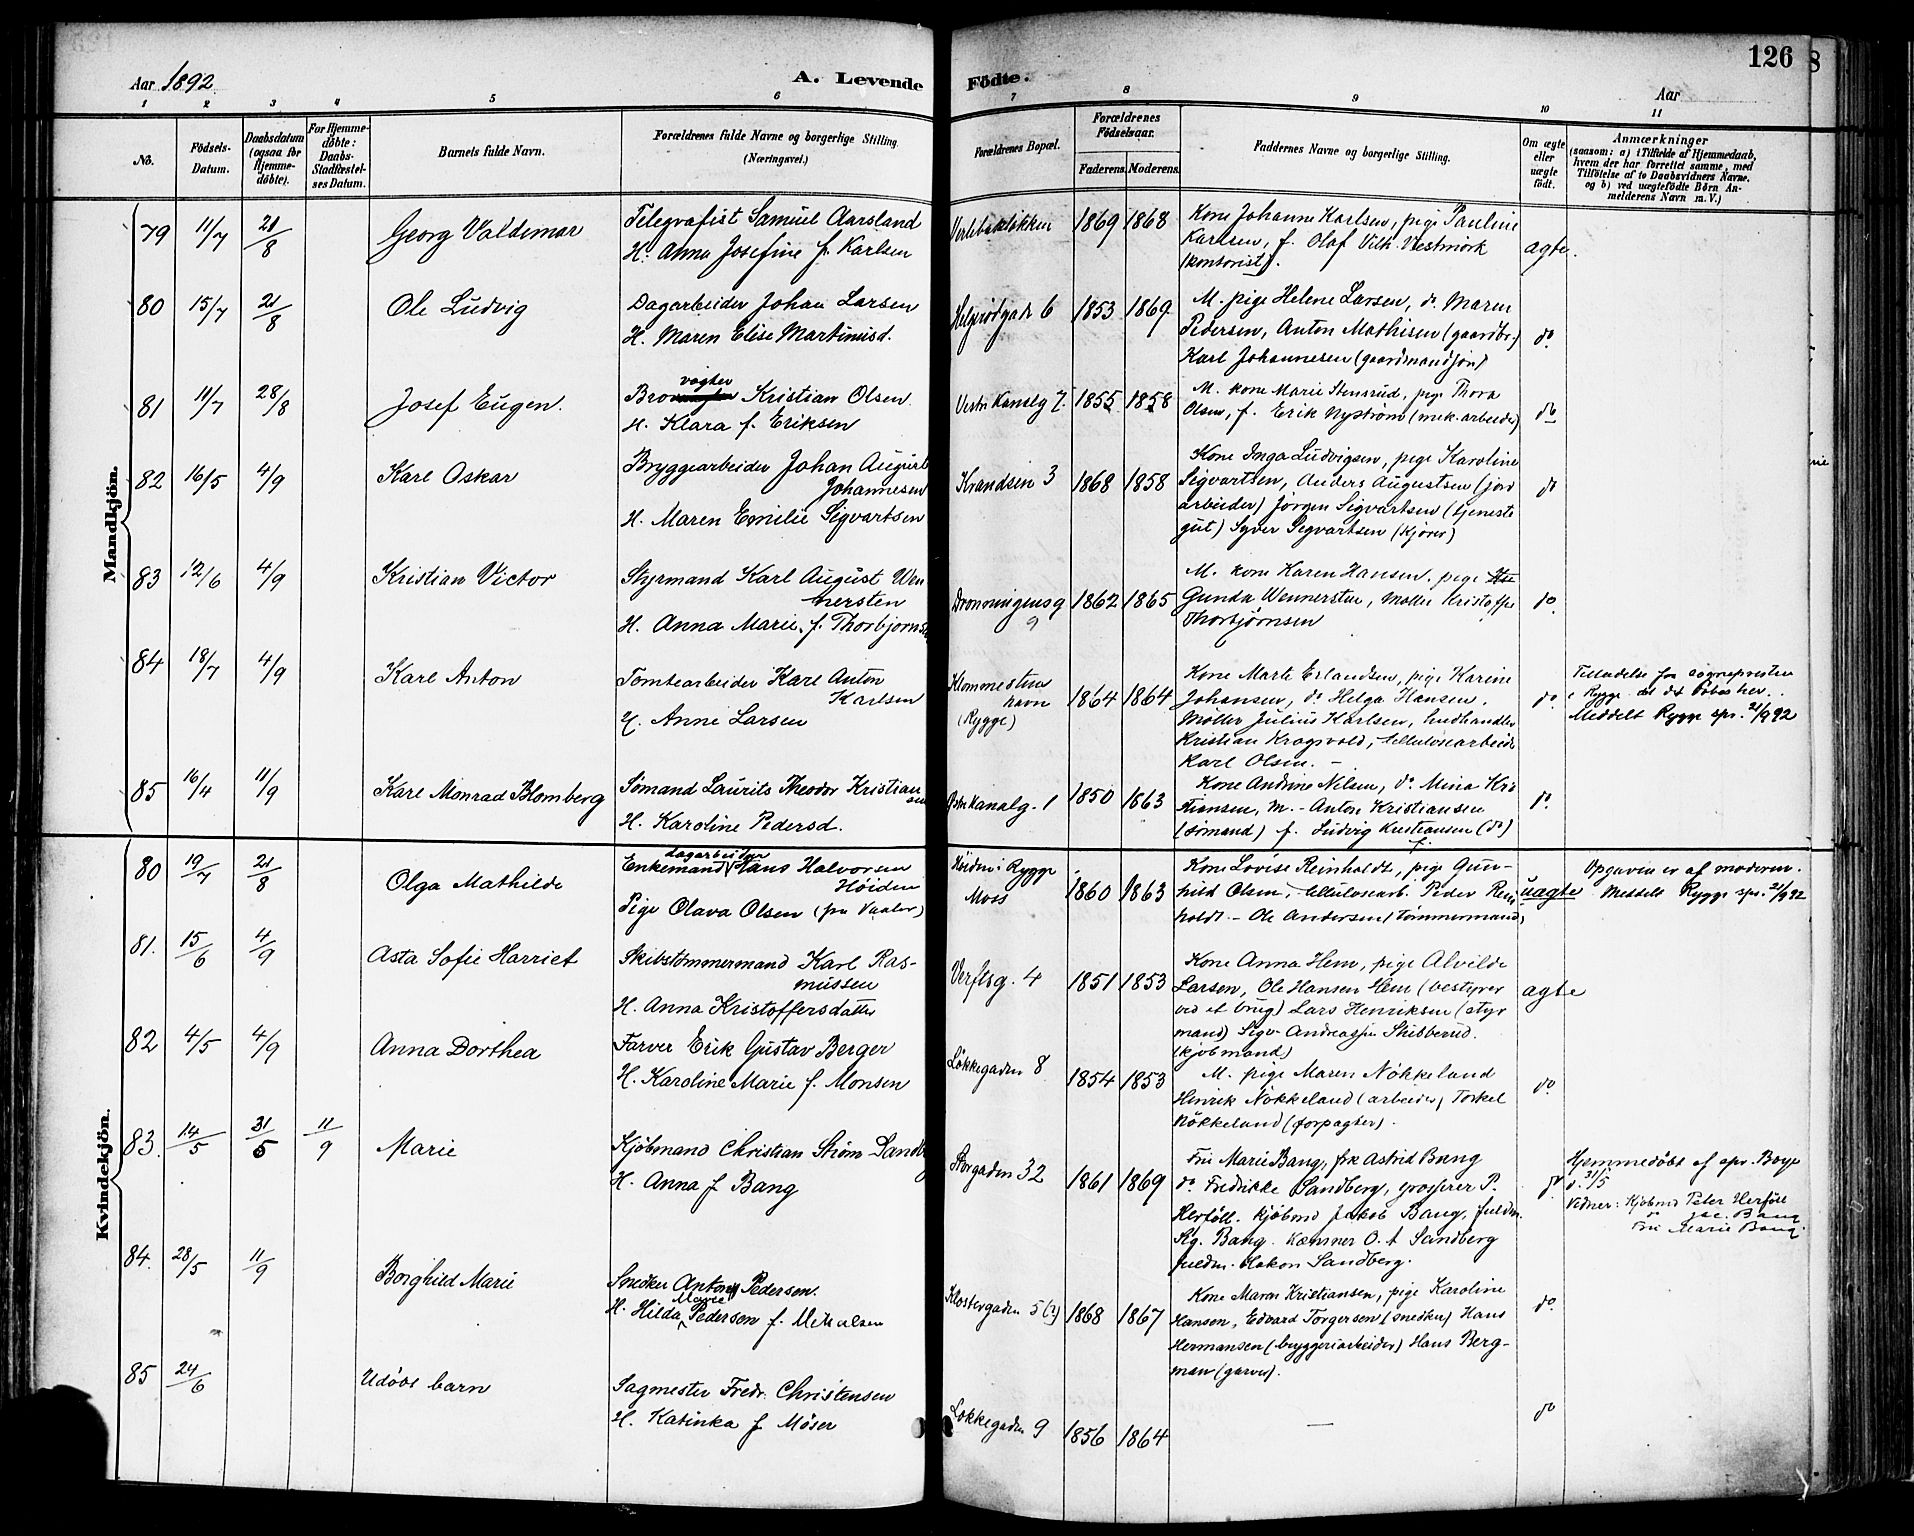 126
Aar 1892
A. Levende Födte.
Aar
1 2 3 4 5 6 7 8 9 10 11
No.
Födsels-
Datum.
Daabsdatum
(ogsaa for
Hjemme-
döbte).
For Hjemme-
döbte:
Daabs-
Stadfæstel-
ses Datum.
Barnets fulde Navn.
Forældrenes fulde Navne og borgerlige Stilling
(Næringsvei.)
Forældrenes Bopæl.
Forældrenes
Födselsaar.
Faderens. Moderens.
Faddernes Navne og borgerlige Stilling.
Om ægte
eller
uægte
födt.
Anmærkninger
(saasom: a) i Tilfælde af Hjemmedaab,
hvem der har forrettet samme, med
Tilföielse af to Daabsvidners Navne.
og b) ved uægtefödte Börn An-
melderens Navn m. V.)
Mandkjön.
79 11/7 21/8 Georg Valdemar
Telegrafist Samuel Aarsland
H. Anna Josefine f. Karlsen
1869 1868
Kone Johanne Karlsen, pige Pauline
Karlsen, f. Olaf Vilh. Vestmörk
(kontorist).
ægte.
80 15/7 21/8 Ole Ludvig
Dagarbeider Johan Larsen
H. Maren Elise Martinusd.
Helgerödgade 6 1853 1869
M. pige Helene Larsen, do. Maren
Pedersen, Anton Mathisen (gaardbr.)
Karl Johannesen (gaardmandssön)
do.
81 11/7 28/8 Josef Eugen.
vagter
Bro Kristian Olsen
H. Klara f. Eriksen
Vestre Kanalg 7. 1855 1858
M. kone Marie Stensrud, pige Thora
Olsen, f. Erik Nyström (mek. arbeider)
do
82 16/5 4/9 Karl Oskar
Bryggearbeider Johan August
Johannesen
H. Maren Emilie Sigvartsen
Krandsen 3 1868 1858
Kone Inga Ludvigsen, pige Karoline
Sigvartsen, Anders Augustsen (jord
arbeider) Jörgen Sigvartsen (tjeneste
gut) Syver Segvartsen (kjörer)
do
83 12/6 4/9 Kristian Victor
Styrmand Karl August Wen
nersten
H. Anna Marie, f. Thorbjörns
Dronningensg
9
1862 1865
M. kone Karen Hansen, pige
Gunda Wennersten, Möller Kristoffer
Thorbjörnsen
do.
84 18/7 4/9 Karl Anton
Tomtearbeider Karl Anton
Karlsen
H. Anne Larsen
Klommesten
havn
(Rygge)
1864 1864
Kone Marte Erlandsen, pige Karine
Johansen, do. Helga Hansen.
Möller Julius Karlsen, hudhandler
Kristian Kragsvold, cellulosearbeid
Karl Olsen. –
do.
Tilladelse fra sognepresten
i Rygge det döbes her.
Meddelt Rygge spr. 21/9 92
85 16/4 11/9 Karl Monrad Blomberg
Sömand Laurits Theodor Kristian
sen
H. Karoline Pedersd.
Östre Kanalg. 1 1850 1863
Kone Andrine Nilsen, do. Mina Kri
stiansen, M. – Anton Kristiansen
(sömand) f. Ludvig Kristiansen (do)
do.
Kvindekjön.
80 19/7 21/8 Olga Mathilde
dagarbeider
Enkemand Hans Halvorsen
Höiden
Pige Olava Olsen (fra Vaaler)
Höiden i Rygge
Moss
1860 1863
Kone Lovise Reinholdt, pige Gun-
hild Olsen, – cellulosearb. Peder Rein
holdt – Ole Andersen (tömmermand)
uægte
Opgaven er af moderen.
Meddelt Rygge spr. 21/9 92
81. 15/6 4/9 Asta Sofie Harriet
Skibstömmermand Karl Ras-
mussen
H. Anna Kristoffersdatter
Verftsg. 4 1851 1853
Kone Anna Hem, pige Alvilde
Larsen, Ole Hansen Hem (bestyrer
ved et brug) Lars Henriksen (styr
mand) Sigv. Skibberud.
(kjöbmand)
ægte
82 4/5 4/9 Anna Dorthea
Farver Erik Gustav Berger
H. Karoline Marie f. Monsen
Lökkegaden 8 1854 1853
M. pige Maren Nökkeland
Hinrik Nökkeland (arbeider) Torkel
Nökkeland (forpagter).
do.
83. 14/5 31/5 11/9 Marie
Kjöbmand Christian Ström Sandb
H. Anna f Bang
Storgaden 32 1861 1869
Fru Marie Bang, frk Astrid Bang
do. Fredrikke Sandberg, grosserer P.
Herföll. Kjöbmd Jakob Bang, fuldm.
Kg. Bang. Kæmner O. A Sandberg
fuldm. Hakon Sandberg.
do
Hjemmedöbt af spr. Boye
d. 31/5
Vidner: Kjöbmd Peter Herföll
do Jac. Bang
Fru Marie Bang.
84. 28/5 11/9 Borghild Marie
Snedker Anton Pedersen.
Marie
H. Hilda Pedersen f. Mikalsen
Klostergaden 5 (?) 1868 1867
Kone Maren Kristiansen, pige Karoline
Hansen, Edvard Torgersen (snedker) Hans
Hermansen (bryggeriarbeider) Hans Berg-
man (garver).
do.
85 24/6 Udöbt barn
Sagmester Fredr. Christensen
H. Katinka f Möser
Lökkegaden 9 1856 1864
—
do